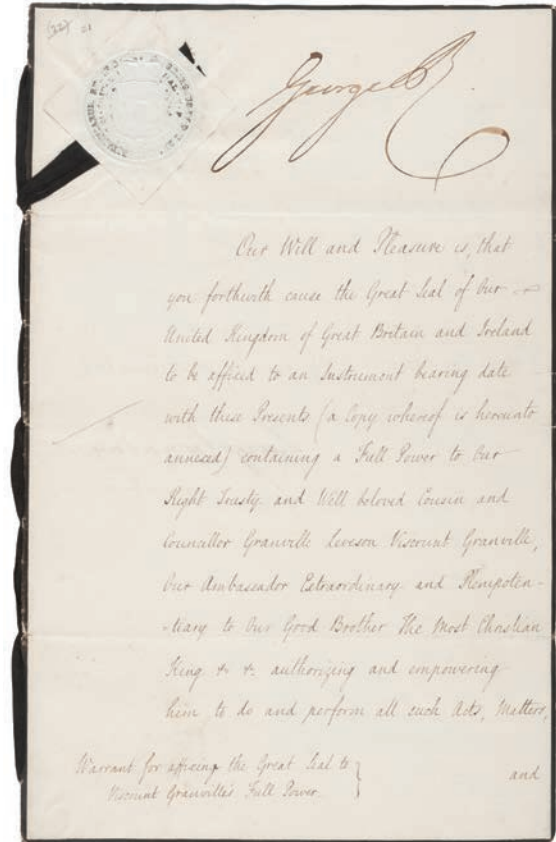 (22) 21
George R
Our Will and Pleasure is, that
you forthwith cause the Great Seal of Our
United Kingdom of Great Britain and Ireland
to be affixed to an Instrument bearing date
with these Presents (a Copy whereof is hereunto
annexed) containing a Full Power to Our
Right Trusty and Well beloved Cousin and
Councillor Granville Leveson Viscount Granville,
Our Ambassador Extraordinary and Plenipoten-
-tiary to Our Good Brother The Most Christian
King &c &c authorizing and empowering
him to do and perform all such Acts, Matters,
and
Warrant for affixing the Great Seal to
Viscount Granville's Full Power